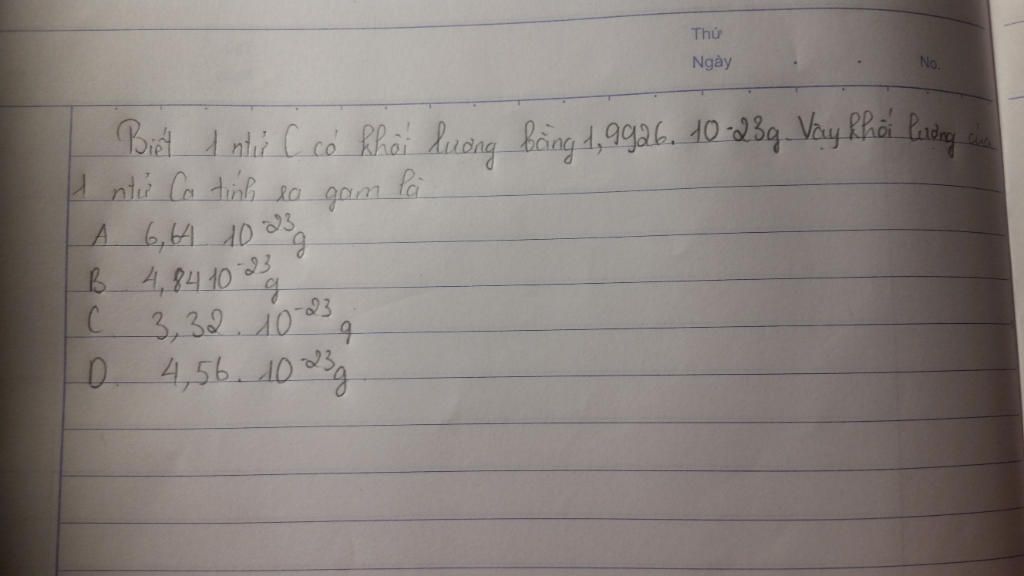 Thứ
Ngày No.
Biết 1 ntử C có khối lương bằng 1,9926. 10-23g. Vậy khối lượng của
1 ntử Ca tính ra gam là
A 6,64 10-23g
B 4,84 10-23g
C. 3,32. 10-23 g
D. 4,56. 10-23g